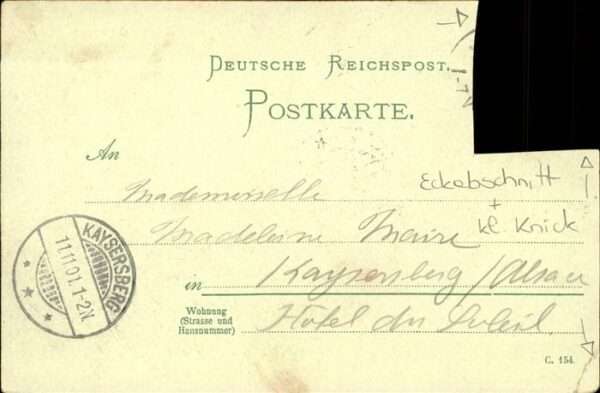 DEUTSCHE REICHSPOST.
POSTKARTE.
An
Eckabschnitt
+
kl. Knick
Mademoiselle
Madeleine Maire
in Kaysersberg / Alsace
Wohnung
(Strasse und
Hausnummer)
Hôtel du Soleil.
KAYSERSBERG
11.11.01.1-2N.
C. 154.